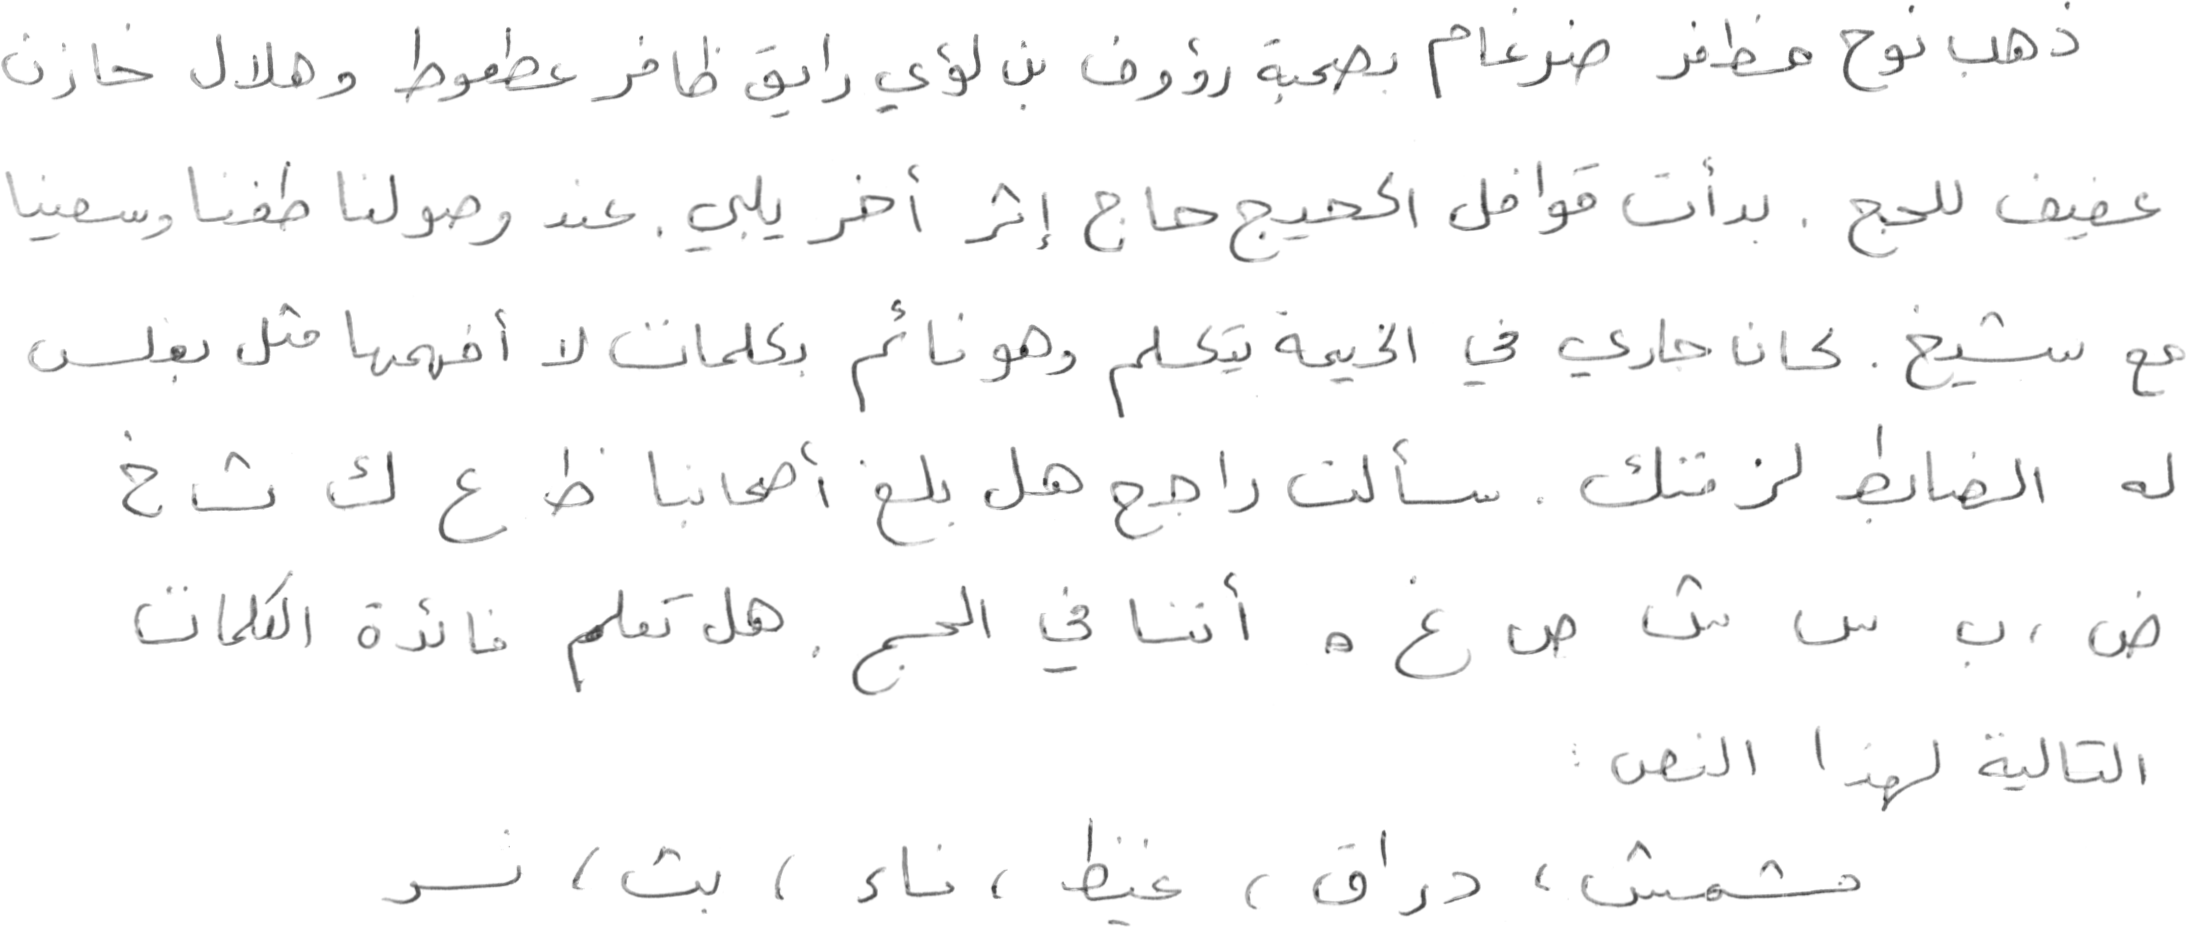 ذهب نوح مظفر ضرغام بصحبة رؤوف بن لؤي رايق ظافر عطعوط وهلال خازن
عفيف للحج . بدأت قوافل الحجيج حاج إثر أخر يلبي . عند وصولنا طفنا وسعينا
مع شيخ . كان جاري في الخيمة يتكلم وهو نائم بكلمات لا أفهمها مثل بغلس
له الضابط لزقتك . سألت راجح هل بلغ أصحابنا ظ ع ك ث خ
ض ، ب س ش ص غ ه أننا في الحج . هل تعلم فائدة الكلمات
التالية لهذا النص :
مشمش ، دراق ، غيظ ، ناء ، بث ، نسر